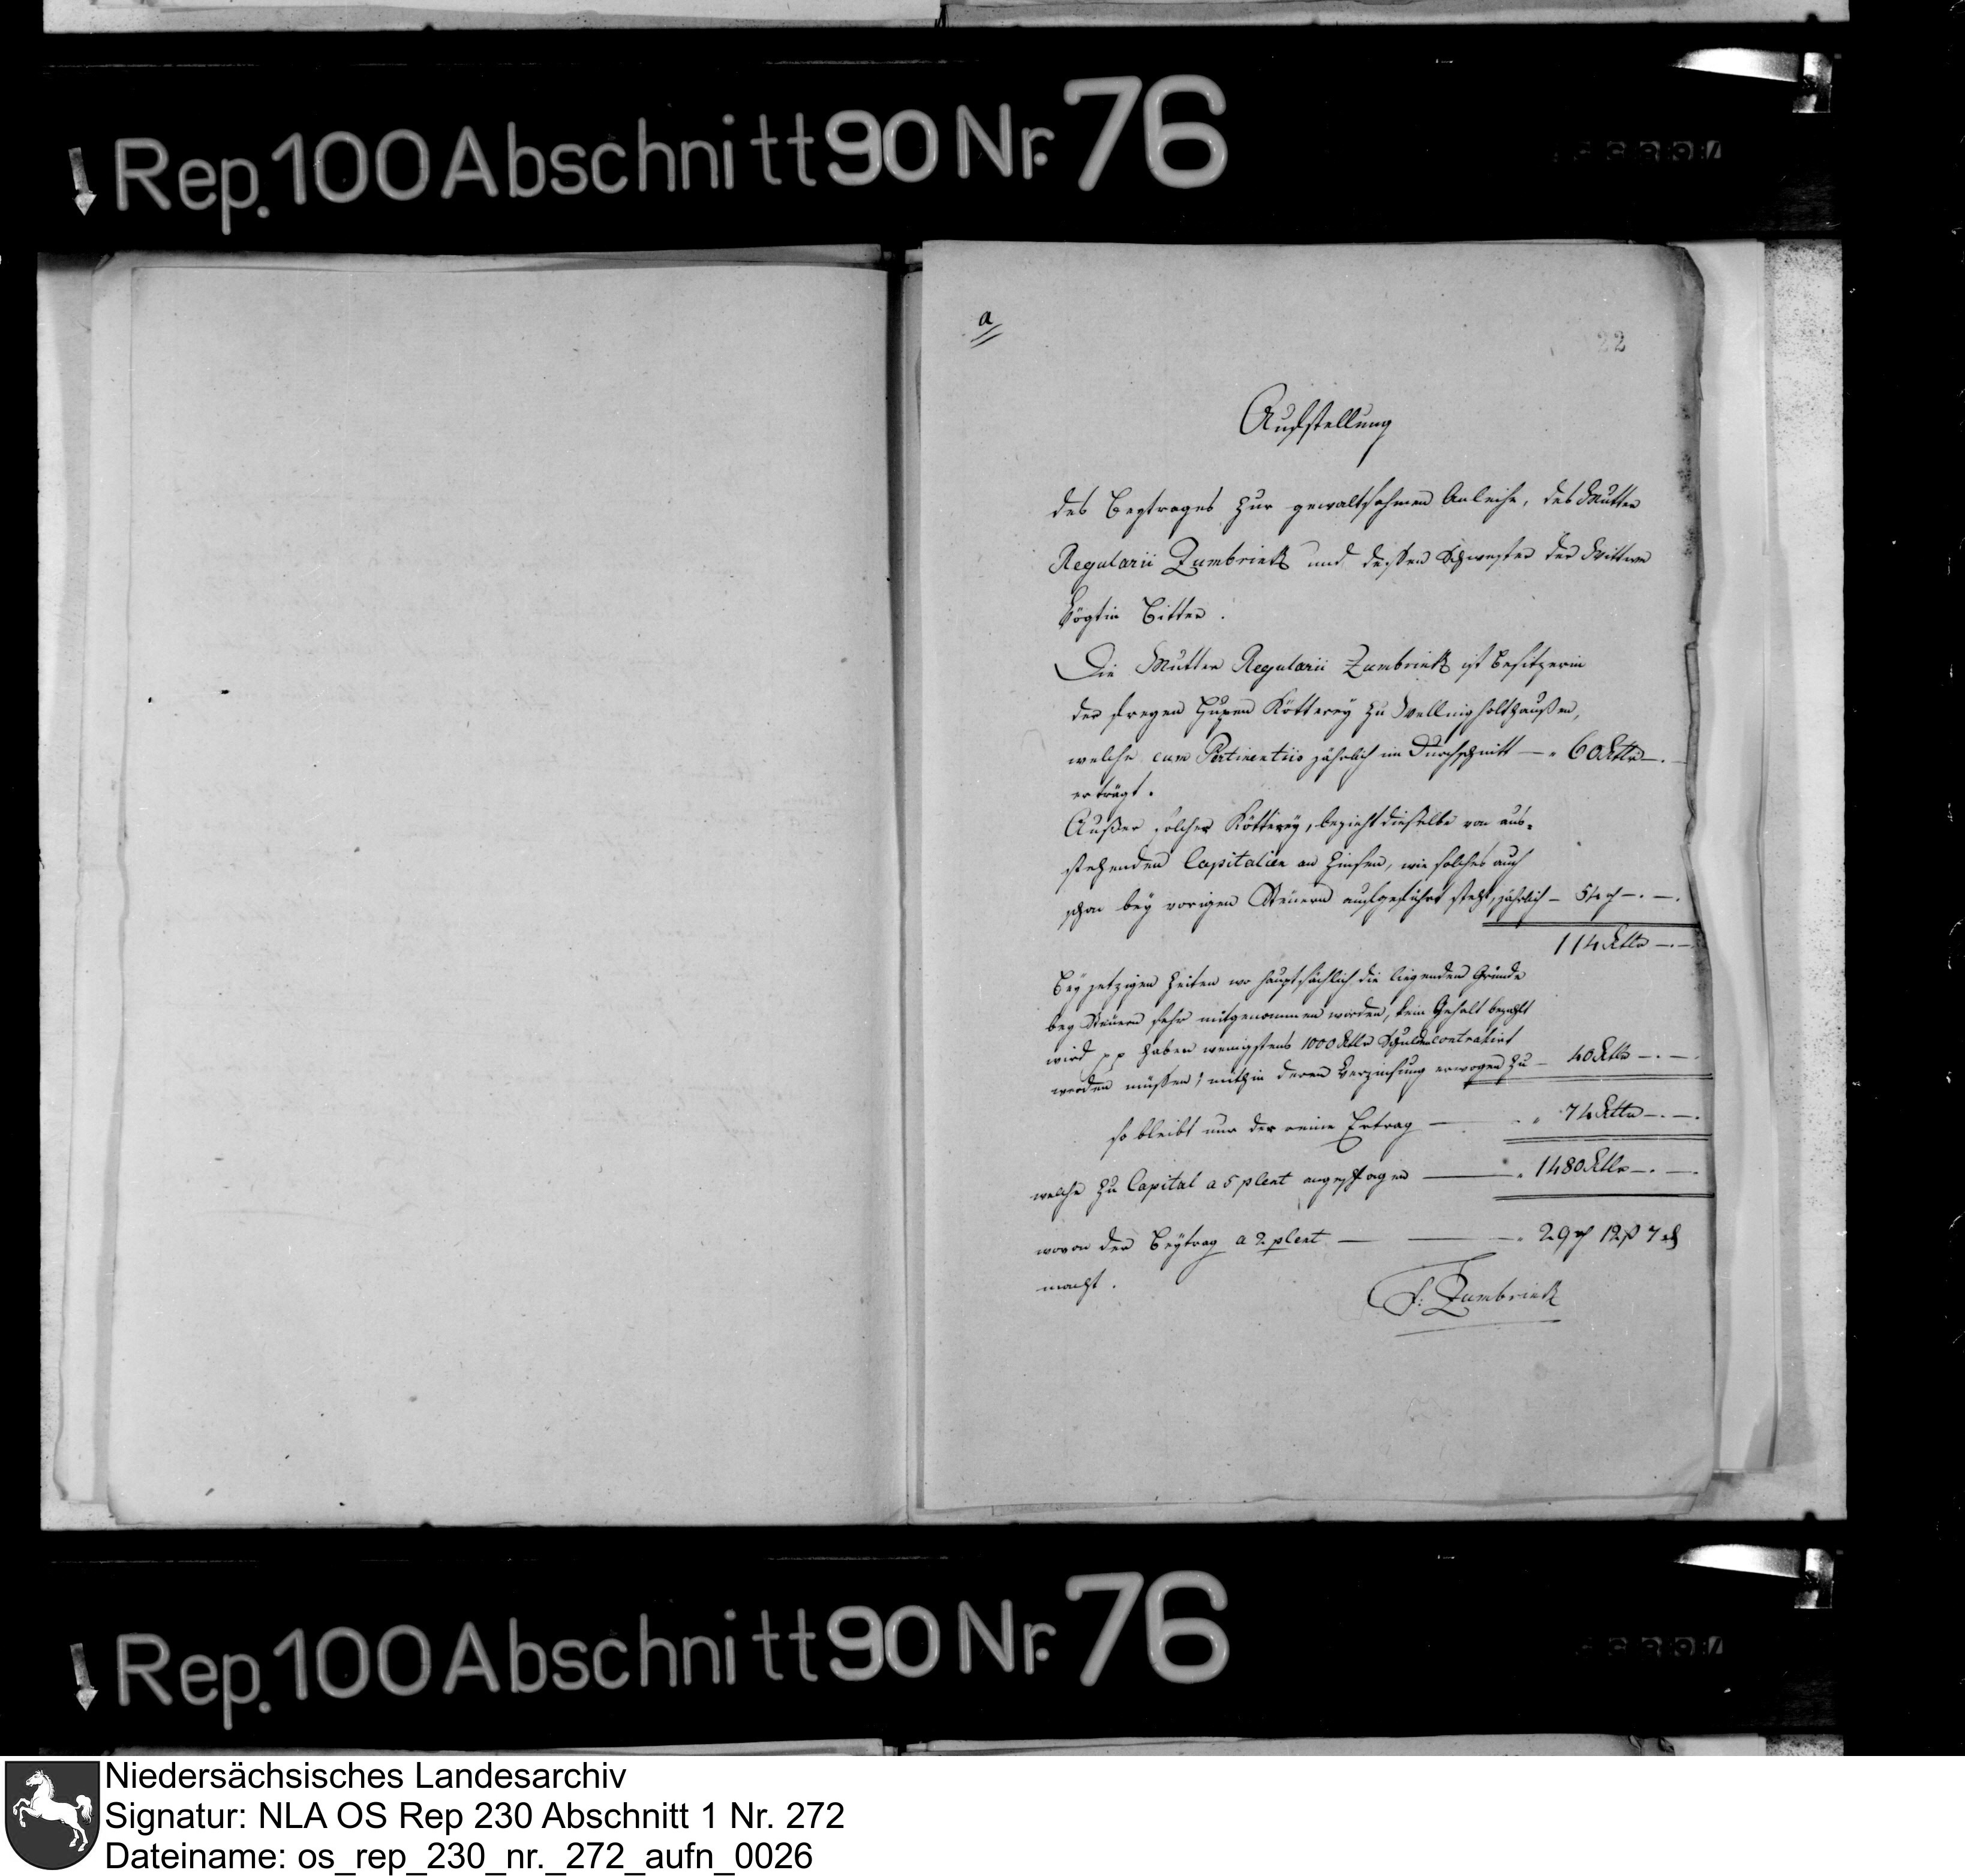 Rep. 100 Abschnitt 90 Nr. 76
a
22
Aufstellung
des Beytrages zur gewaltsahmen Anleihe, des Mutter
Regularii Zumbrink und dessen Schwester der Wittwe
Vögtin Bitter.
Die Mutter Regularii Zumbrink ist Besitzerin
der freyen Kötterey zu Wellingholthaußen,
welche cum Pertinentiis jährlich im Durchschnitt — " 60 Rtlr —.
erträgt.
Außer solcher Kötterey, bezieht dieselbe von aus-
stehenden Capitalien an Zinsen, wie solches auch
schon bey vorigen Steuern aufgeführt steht, jährlich — 54 —. —.
114 Rtlr —. —.
Bey jetzigen Zeiten wo hauptsächlich die liegenden Gründe
bey Steuern sehr mitgenommen worden, kein Gehalt bezahlt
wird pp haben wenigstens 1000 Rtlr Schulden contrahirt
werden müssen; mithin deren Verzinsung erwogen zu — 40 Rtlr —. —.
so bleibt nur der reine Ertrag — " 74 Rtlr —. —.
welche zu Capital a 5 pCent angeschlagen — " 1480 Rtlr —. —.
wovon der Beytrag a 2 pCent — — " 29 12 ß 7
macht.
F: Zumbrink
Rep. 100 Abschnitt 90 Nr. 76
Niedersächsisches Landesarchiv
Signatur: NLA OS Rep 230 Abschnitt 1 Nr. 272
Dateiname: os_rep_230_nr._272_aufn_0026